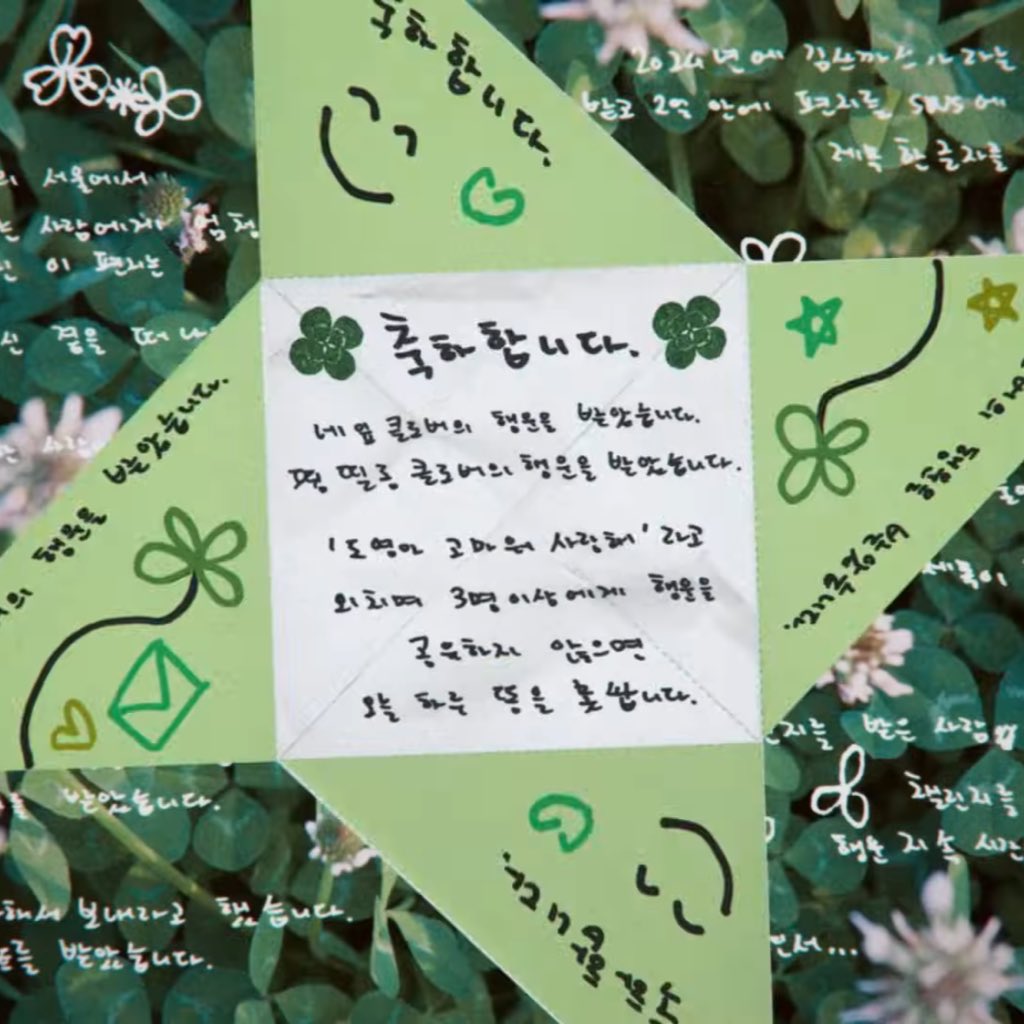 축하합니다.
2024년에
발로 2일 안에 편지를 SNS에
제목 한 글자를
서울에서
사람에게 엄청
이 편지는
꿈을 떠나
축하합니다.
네잎클로버의 행운을 받았습니다.
띵띨롱 클로버의 행운을 받았습니다.
'도영아 고마워 사랑해' 라고
외치며 3명이상에게 행운을
공유하지 않으면
오늘 하루 똥을 못쌉니다.
행운을 받았습니다.
제목이
편지를 받은 사람
챌린지를
행운 지속 시간
받았습니다.
해서 보내라고 했습니다.
를 받았습니다.